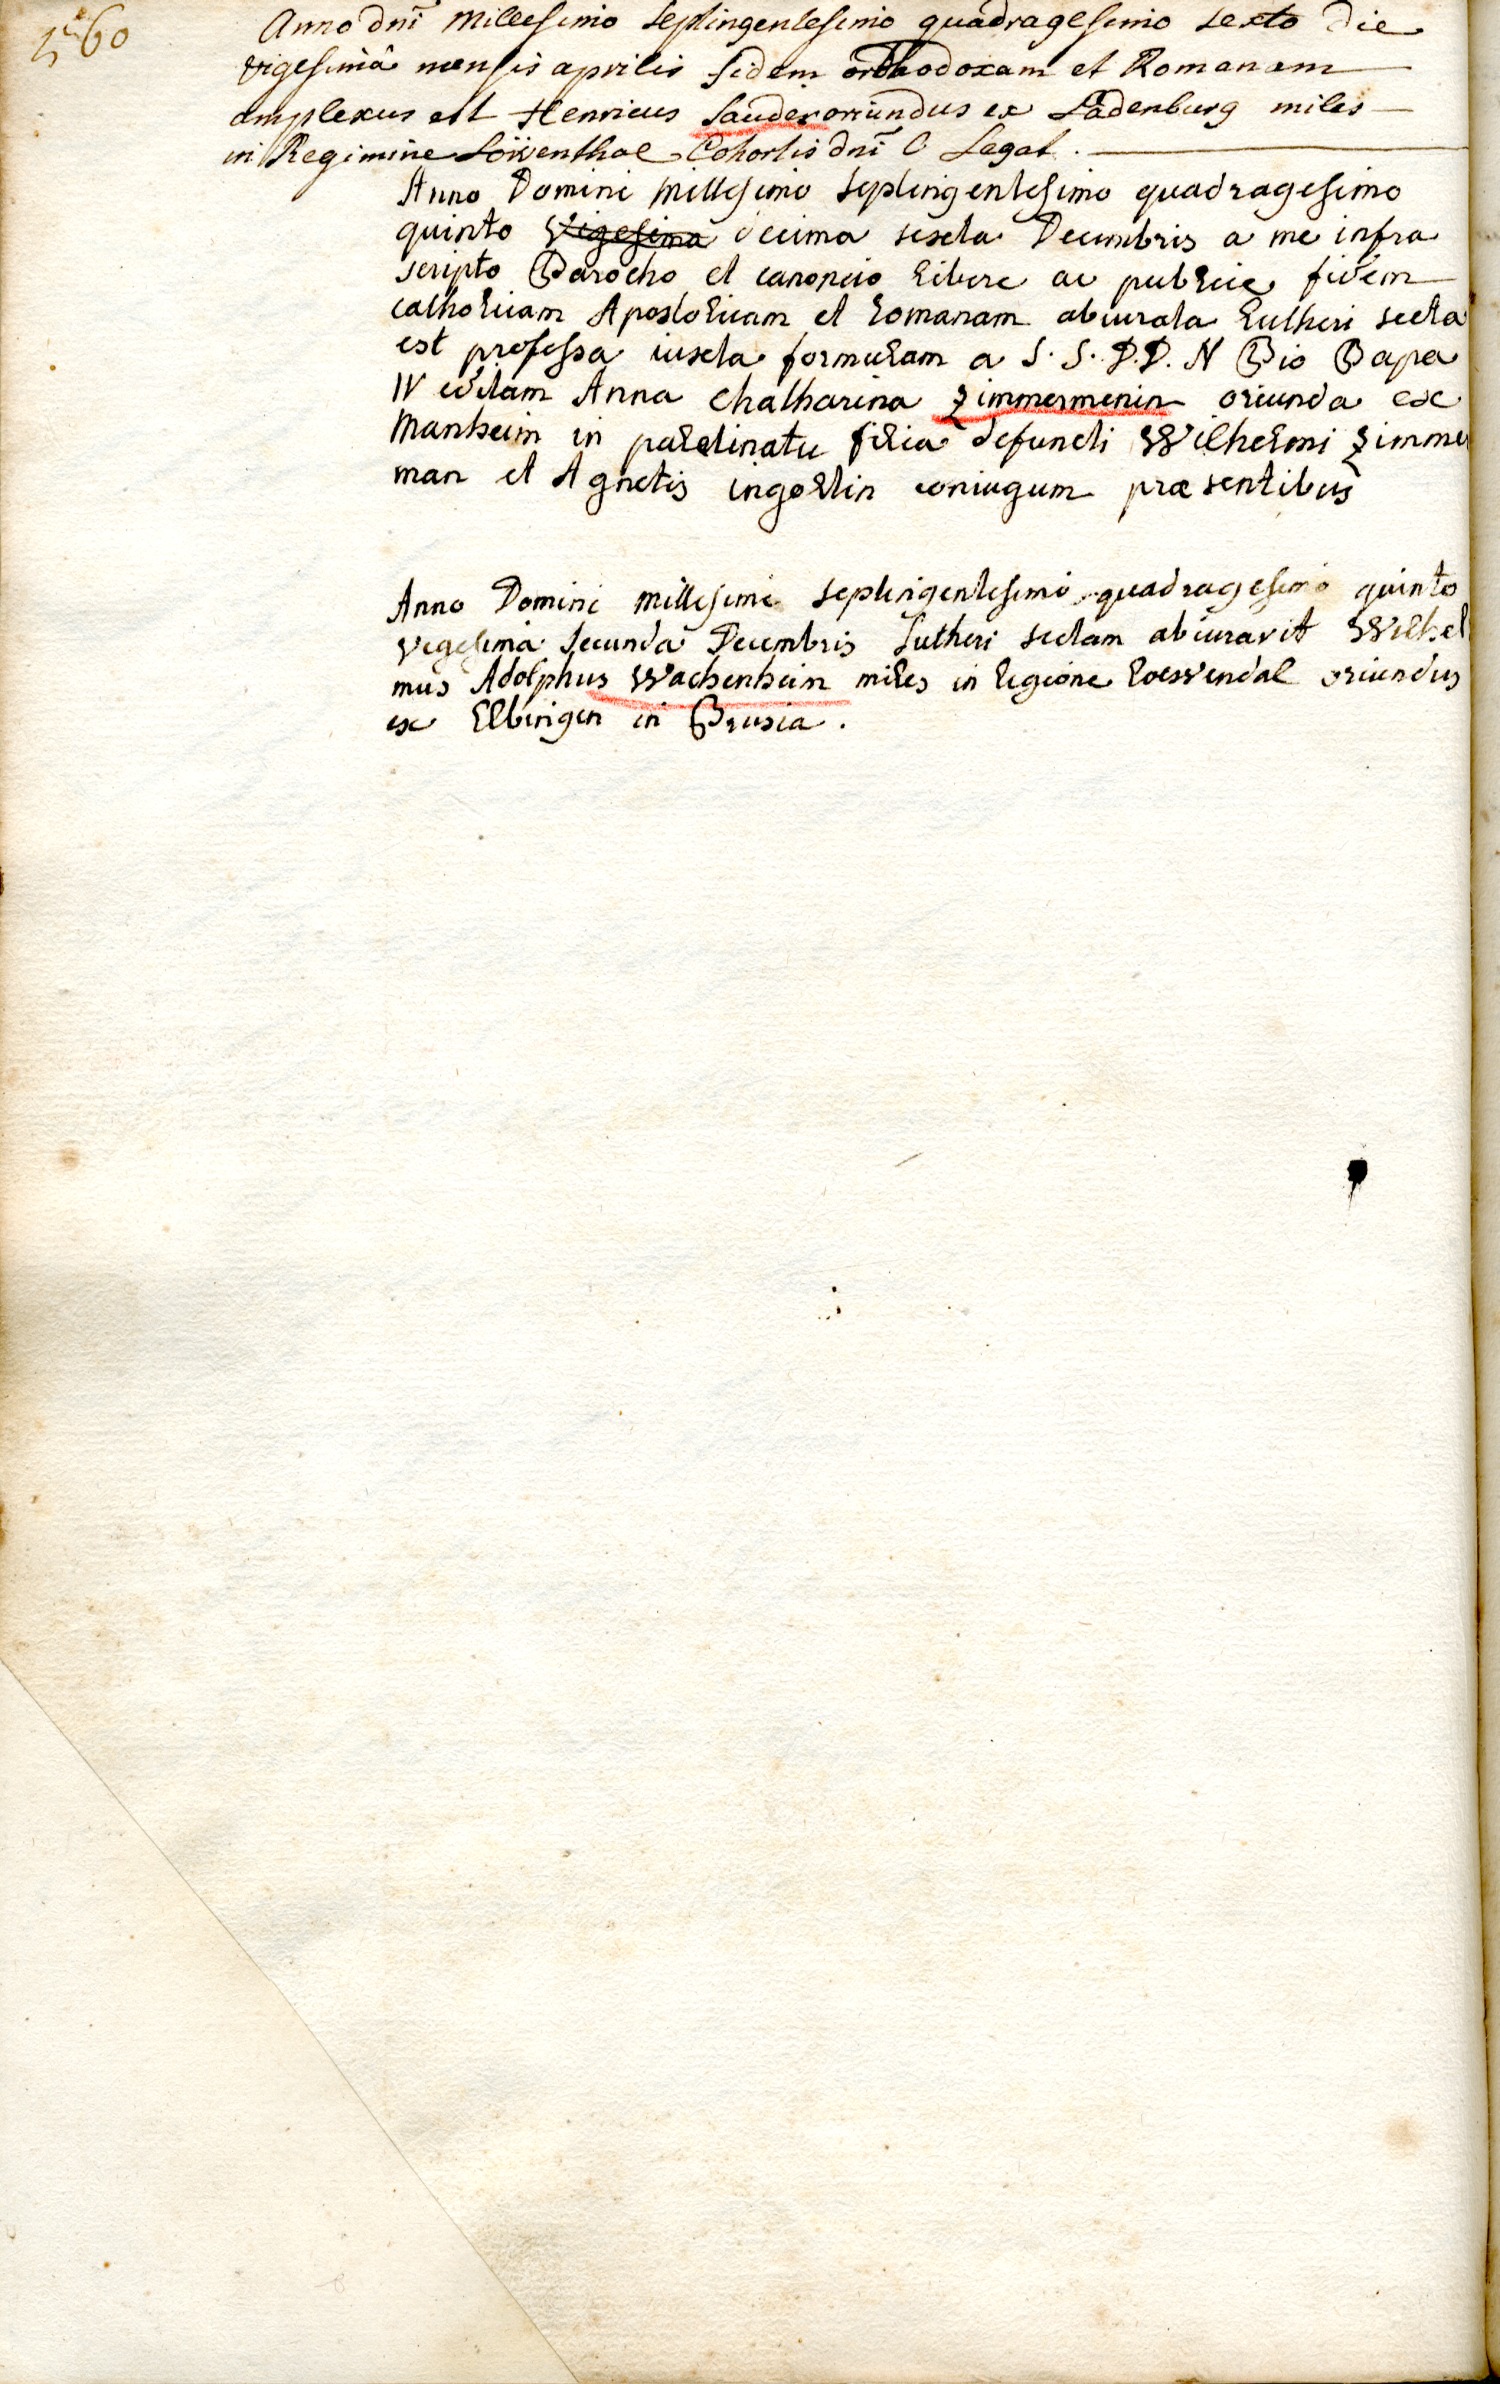 560
Anno dnĩ Millesimo Septingentesimo quadragesimo sexto die
vigesimâ mensis aprilis fidem orthodoxam et Romanam
amplexus est Henricus Sauder oriundus ex Ladenburg miles
in Regimine Löwenthal Cohortis dnĩ C Legat.
Anno Domini Millesimo Septingentesimo quadragesimo
quinto Vigesima decima sexta Decembris a me infra
scripto Parocho et canonico libere ac publice fidem
catholicam Apostolicam et romanam abiurata Lutheri secta
est professa iuxta formulam a S. S. D. D. N Pio Papa
IV editam Anna Chatharina Zimmermenin oriunda ex
Manheim in palatinatu filia defuncti Wilhelmi Zimmer
man et Agnetis ingoltin coniugum præsentibus
Anno Domini millesimo Septingentesimo quadragesimo quinto
vigesima secunda Decembris Lutheri sectam abiuravit Wilhel
mus Adolphus Wachenheim miles in legione Loewendal oriundus
ex Elbingen in Prusia.